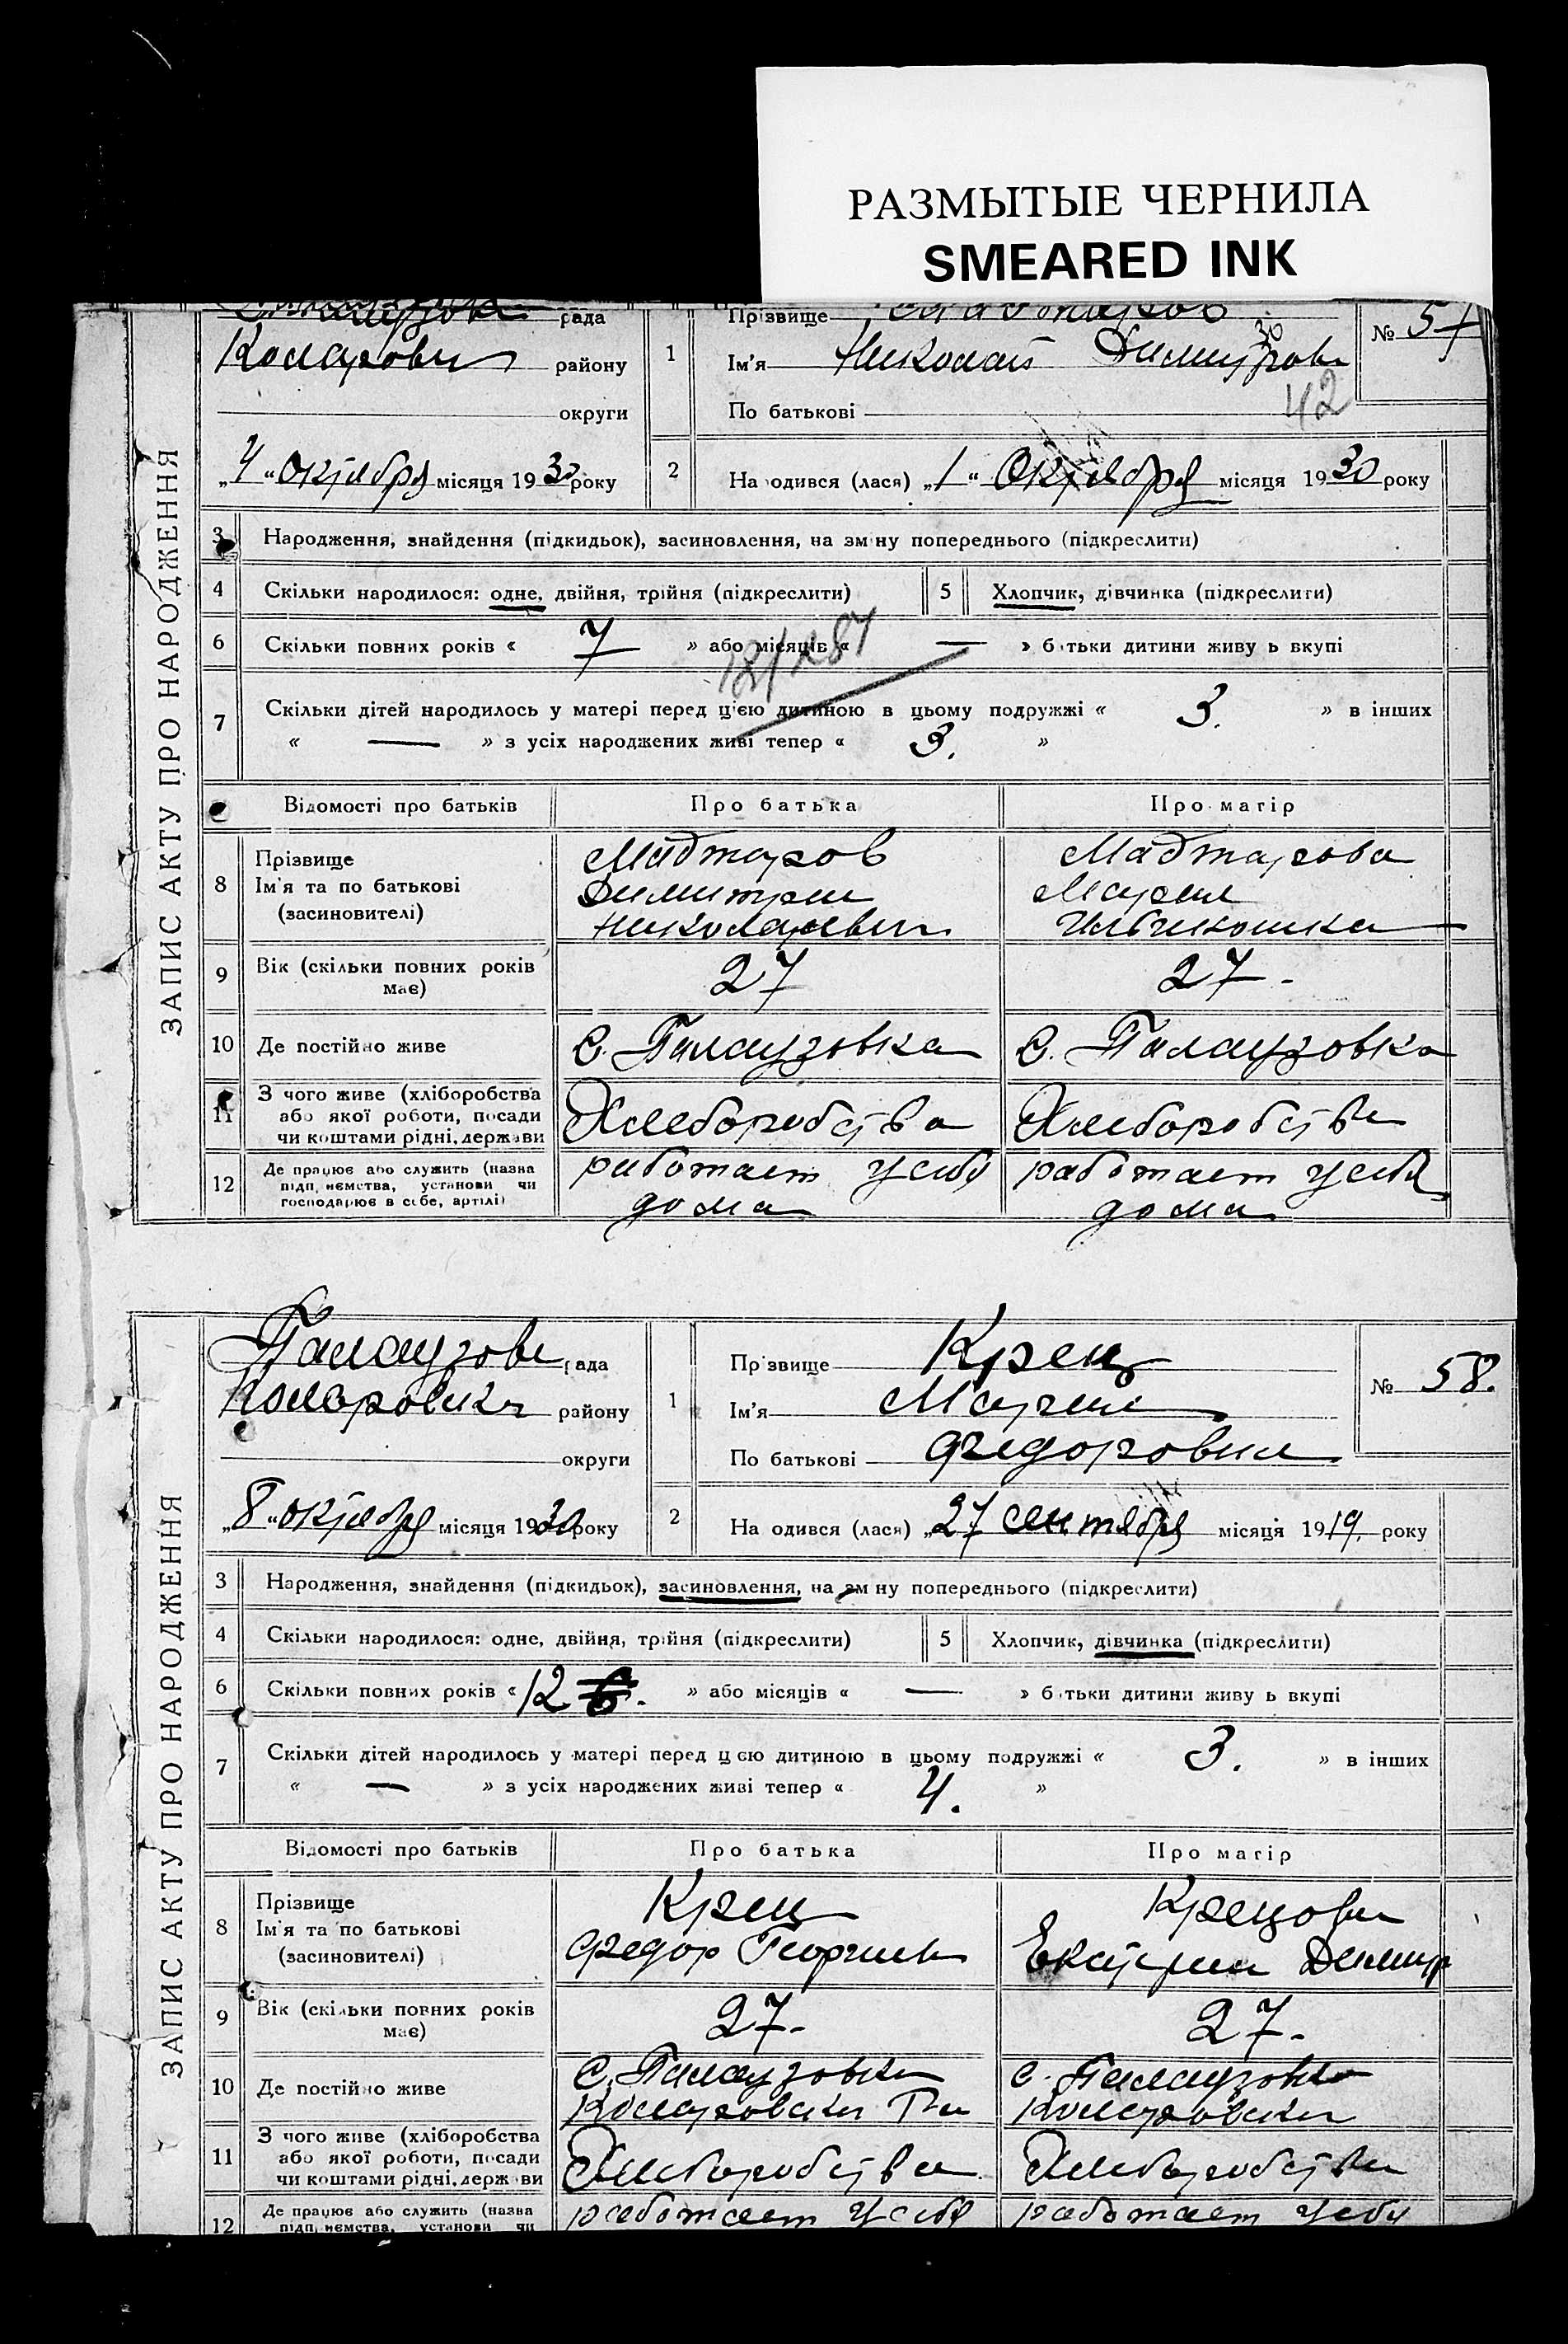 РАЗМЫТЫЕ ЧЕРНИЛА
SMEARED INK
ЗАПИС АКТУ ПРО НАРОДЖЕННЯ
рада
району
округи
„4“ Октября місяця 1930 року
1 Прізвище
Ім'я Николай
По батькові
№ 57
42
2 На одився (лася) „1“ Октября місяця 1930 року
3 Народження, знайдення (підкидьок), засиновлення, на зміну попереднього (підкреслити)
4 Скільки народилося: одне, двійня, трійня (підкреслити)
5 Хлопчик, дівчинка (підкреслити)
6 Скільки повних років « 7 » або місяців « — » батьки дитини живуть вкупі
7 Скільки дітей народилось у матері перед цією дитиною в цьому подружжі « 3. » в інших
« — » з усіх народжених живі тепер « 3. »
Відомості про батьків Про батька Про матір
8 Прізвище
Ім'я та по батькові
(засиновителі)
Маджаров
Димитрии
Николаевич
Маджарова
Мария
9 Вік (скільки повних років
має)
27
27-
10 Де постійно живе
С. Палаузовка
С. Палаузовка
11 З чого живе (хліборобства
або якої роботи, посади
чи коштами рідні, держави
Хлеборобства
Хлеборобства
12 Де працює або служить (назва
підприємства, установи чи
господарює в себе, артілі)
работает у себя
дома
работает у себя
дома
ЗАПИС АКТУ ПРО НАРОДЖЕННЯ
Палаузовс рада
району
округи
„8“ октября місяця 1930 року
1 Прізвище Крец
Ім'я Мария
По батькові Федоровна
№ 58.
2 На одився (лася) „27 сентября місяця 1919. року
3 Народження, знайдення (підкидьок), засиновлення, на зміну попереднього (підкреслити)
4 Скільки народилося: одне, двійня, трійня (підкреслити)
5 Хлопчик, дівчинка (підкреслити)
6 Скільки повних років « 12 » або місяців « — » батьки дитини живуть вкупі
7 Скільки дітей народилось у матері перед цією дитиною в цьому подружжі « 3. » в інших
« — » з усіх народжених живі тепер « 4. »
Відомості про батьків Про батька Про матір
8 Прізвище
Ім'я та по батькові
(засиновителі)
Крец
Федор Георгиев
Крецова
Екатерина Димитр
9 Вік (скільки повних років
має)
27-
27-
10 Де постійно живе
С. Палаузовка
С. Палаузовка
11 З чого живе (хліборобства
або якої роботи, посади
чи коштами рідні, держави
Хлеборобства
Хлеборобства
12 Де працює або служить (назва
підприємства, установи чи
работает у себя
работает у себя